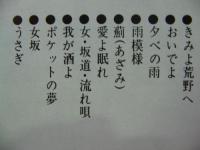 ●きみよ荒野へ
●おいでよ
●夕べの雨
●雨模様
●薊(あざみ)
●愛よ眠れ
●女・坂道・流れ唄
●我が酒よ
●ポケットの夢
●女坂
●うさぎ